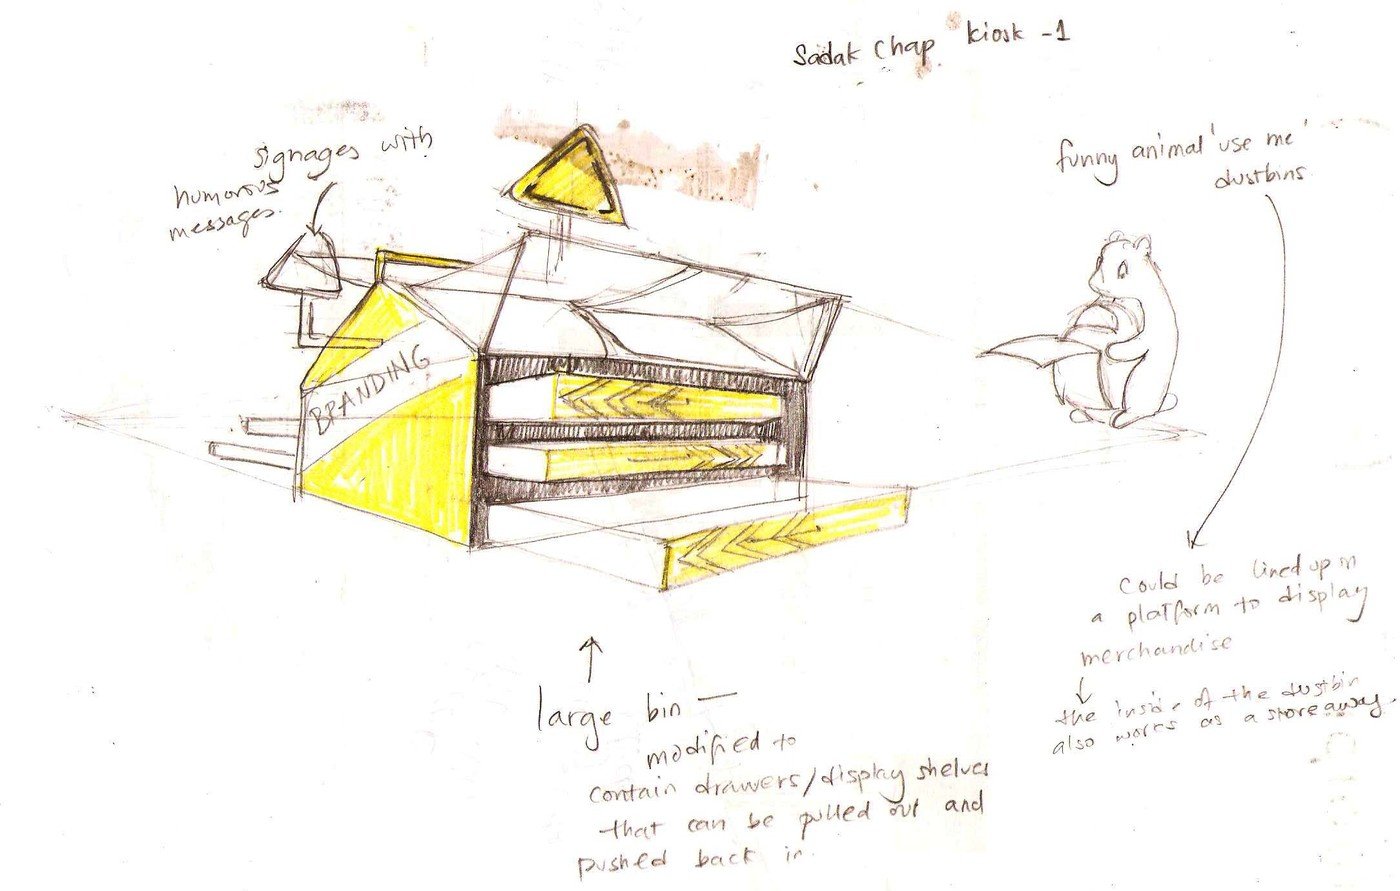 Sadak Chap kiosk -1
signages with
humorous
messages.
funny animal 'use me'
dustbins
BRANDING
could be lined up in
a platform to display
merchandise
the inside of the dustbin
also works as a storeaway.
large bin —
modified to
contain drawers/display shelves
that can be pulled out and
pushed back in.